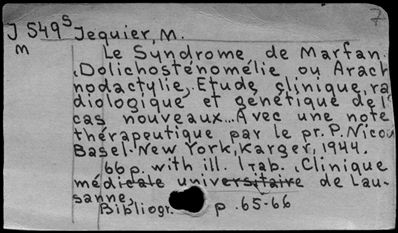 7
J 549s Jequier, M.
m
Le Syndrome de Marfan.
Dolichosténomélie ou Arach
nodactylie. Etude clinique, ra
diologique et génétique de l'
cas nouveaux... Avec une note
thérapeutique par le pr. P. Nicou
Basel. New York, Karger, 1944.
66 p. with ill. 1 tab. (Clinique
médicale universitaire de Lau-
sanne.
Bibliogr. p. 65-66